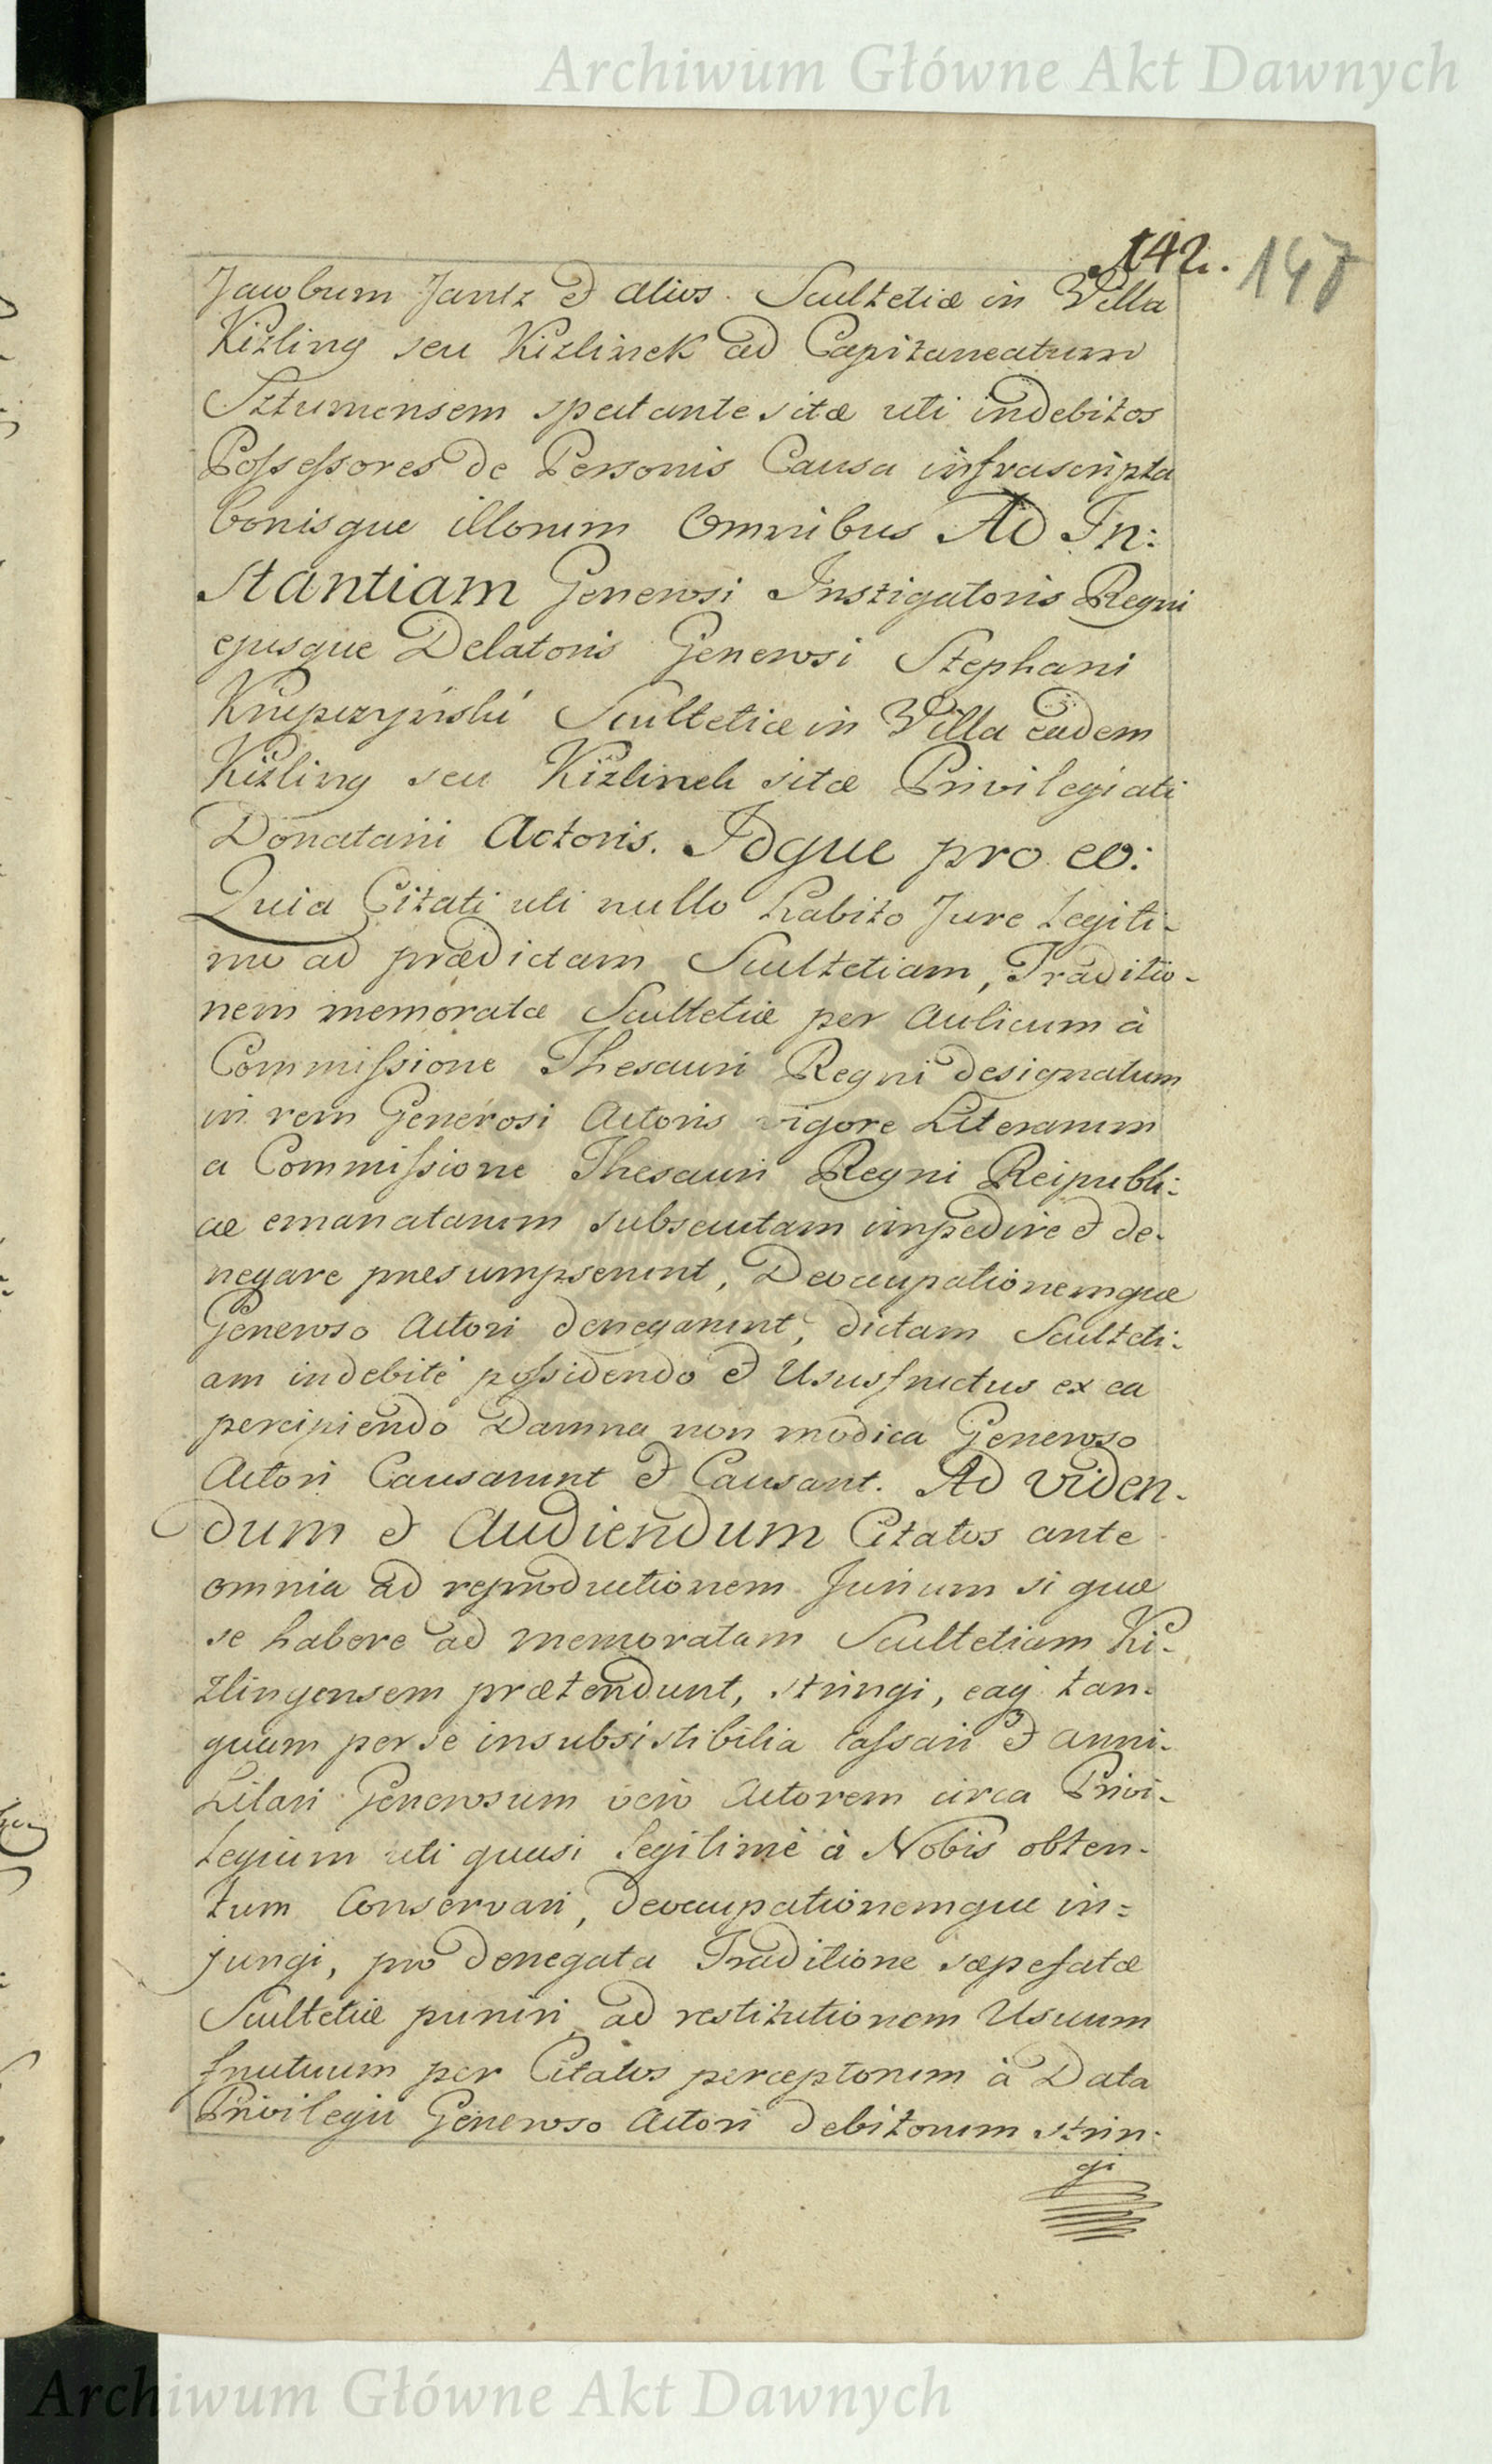 Archiwum Główne Akt Dawnych
142. 147
Jacobum Jantz et alios Scultetiæ in Villa
Kizling seu Kizlinek ad Capitaneatum
Sztumensem spectante sitæ uti indebitos
Possessores de Personis Causa infrascripta
bonisque illorum Omnibus Ad In:
stantiam Generosi Instigatoris Regni
ejusque Delatoris Generosi Stephani
Scultetiæ in Villa eadem
Kizling seu Kizlinek sitæ Privilegiati
Donatarii Actoris. Idque pro eo:
Quia Citati uti nullo habito Jure Legiti-
mo ad prædictam Scultetiam, Traditio-
nem memoratæ Scultetiæ per Aulicum à
Commissione Thesauri Regni designatum
in rem Generosi Actoris vigore Literarum
a Commissione Thesauri Regni Reipubli:
cæ emanatarum subsecutam impedire et de-
negare præsumpserunt, Deoccupationemque
Generoso Actori denegarunt, dictam Sculteti:
am indebitè possidendo et Ususfructus ex ea
percipiendo Damna non modica Generoso
Actori Causarunt et Causant. Ad Viden-
dum et Audiendum Citatos ante
omnia ad reproductionem Jurium si quæ
se habere ad memoratam Scultetiam Ki-
zlingensem prætendunt, stringi, eaq tan-
quam per se insubsistibilia cassari et anni-
hilari Generosum verò Actorem circa Privi-
legium uti quasi legitimè à Nobis obten-
tum Conservari, deoccupationemque in=
jungi, pro denegata Traditione sæpefatæ
Scultetiæ puniri, ad restitutionem Usuum
fructuum per Citatos perceptorum à Data
Privilegii Generoso Actori debitorum strin-
gi
Archiwum Główne Akt Dawnych